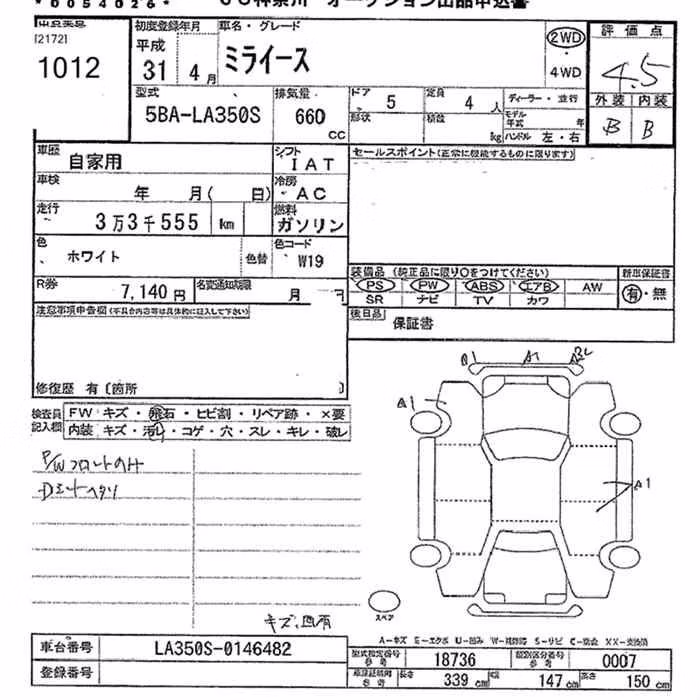 *0054026* オークション出品申込書
[2172]
1012
初度登録年月 車名・グレード
平成 31 4月 ミライース
2WD ・ 4WD
評価点
4.5
外装 内装
B B
型式 5BA-LA350S
排気量 660 CC
ドア 5 定員 4人
ディーラー・並行
形状 積数 kg
モデル年式 年
ハンドル 左・右
車歴 自家用
シフト IAT
セールスポイント(正常に機能するものに限ります)
車検 年 月( 日)
冷房 AC
走行 3万3千555 km
燃料 ガソリン
色 ホワイト 色替
色コード W19
装備品(純正品に限り○をつけてください) 新車保証書
PS PW ABS エアB AW 有・無
SR ナビ TV カワ
R券 7,140円 名変通知期限 月
後日品 保証書
注意事項申告欄(不具合内容等は具体的に記入して下さい)
修復歴 有 [箇所 ]
検査員記入欄
FW キズ・飛石・ヒビ割・リペア跡・×要
内装 キズ・汚レ・コゲ・穴・スレ・キレ・破レ
P/WフロントのみDシートヘタリ
A1
A1
A1
スペア
キズ、凹有
A-キズ E-エクボ U-凹み W-補修跡 S-サビ C-腐食 XX-交換済
車台番号 LA350S-0146482
登録番号
型式指定番号 参考 18736
類別区分番号 参考 0007
長さ 339 cm 幅 147 cm 高さ 150 cm